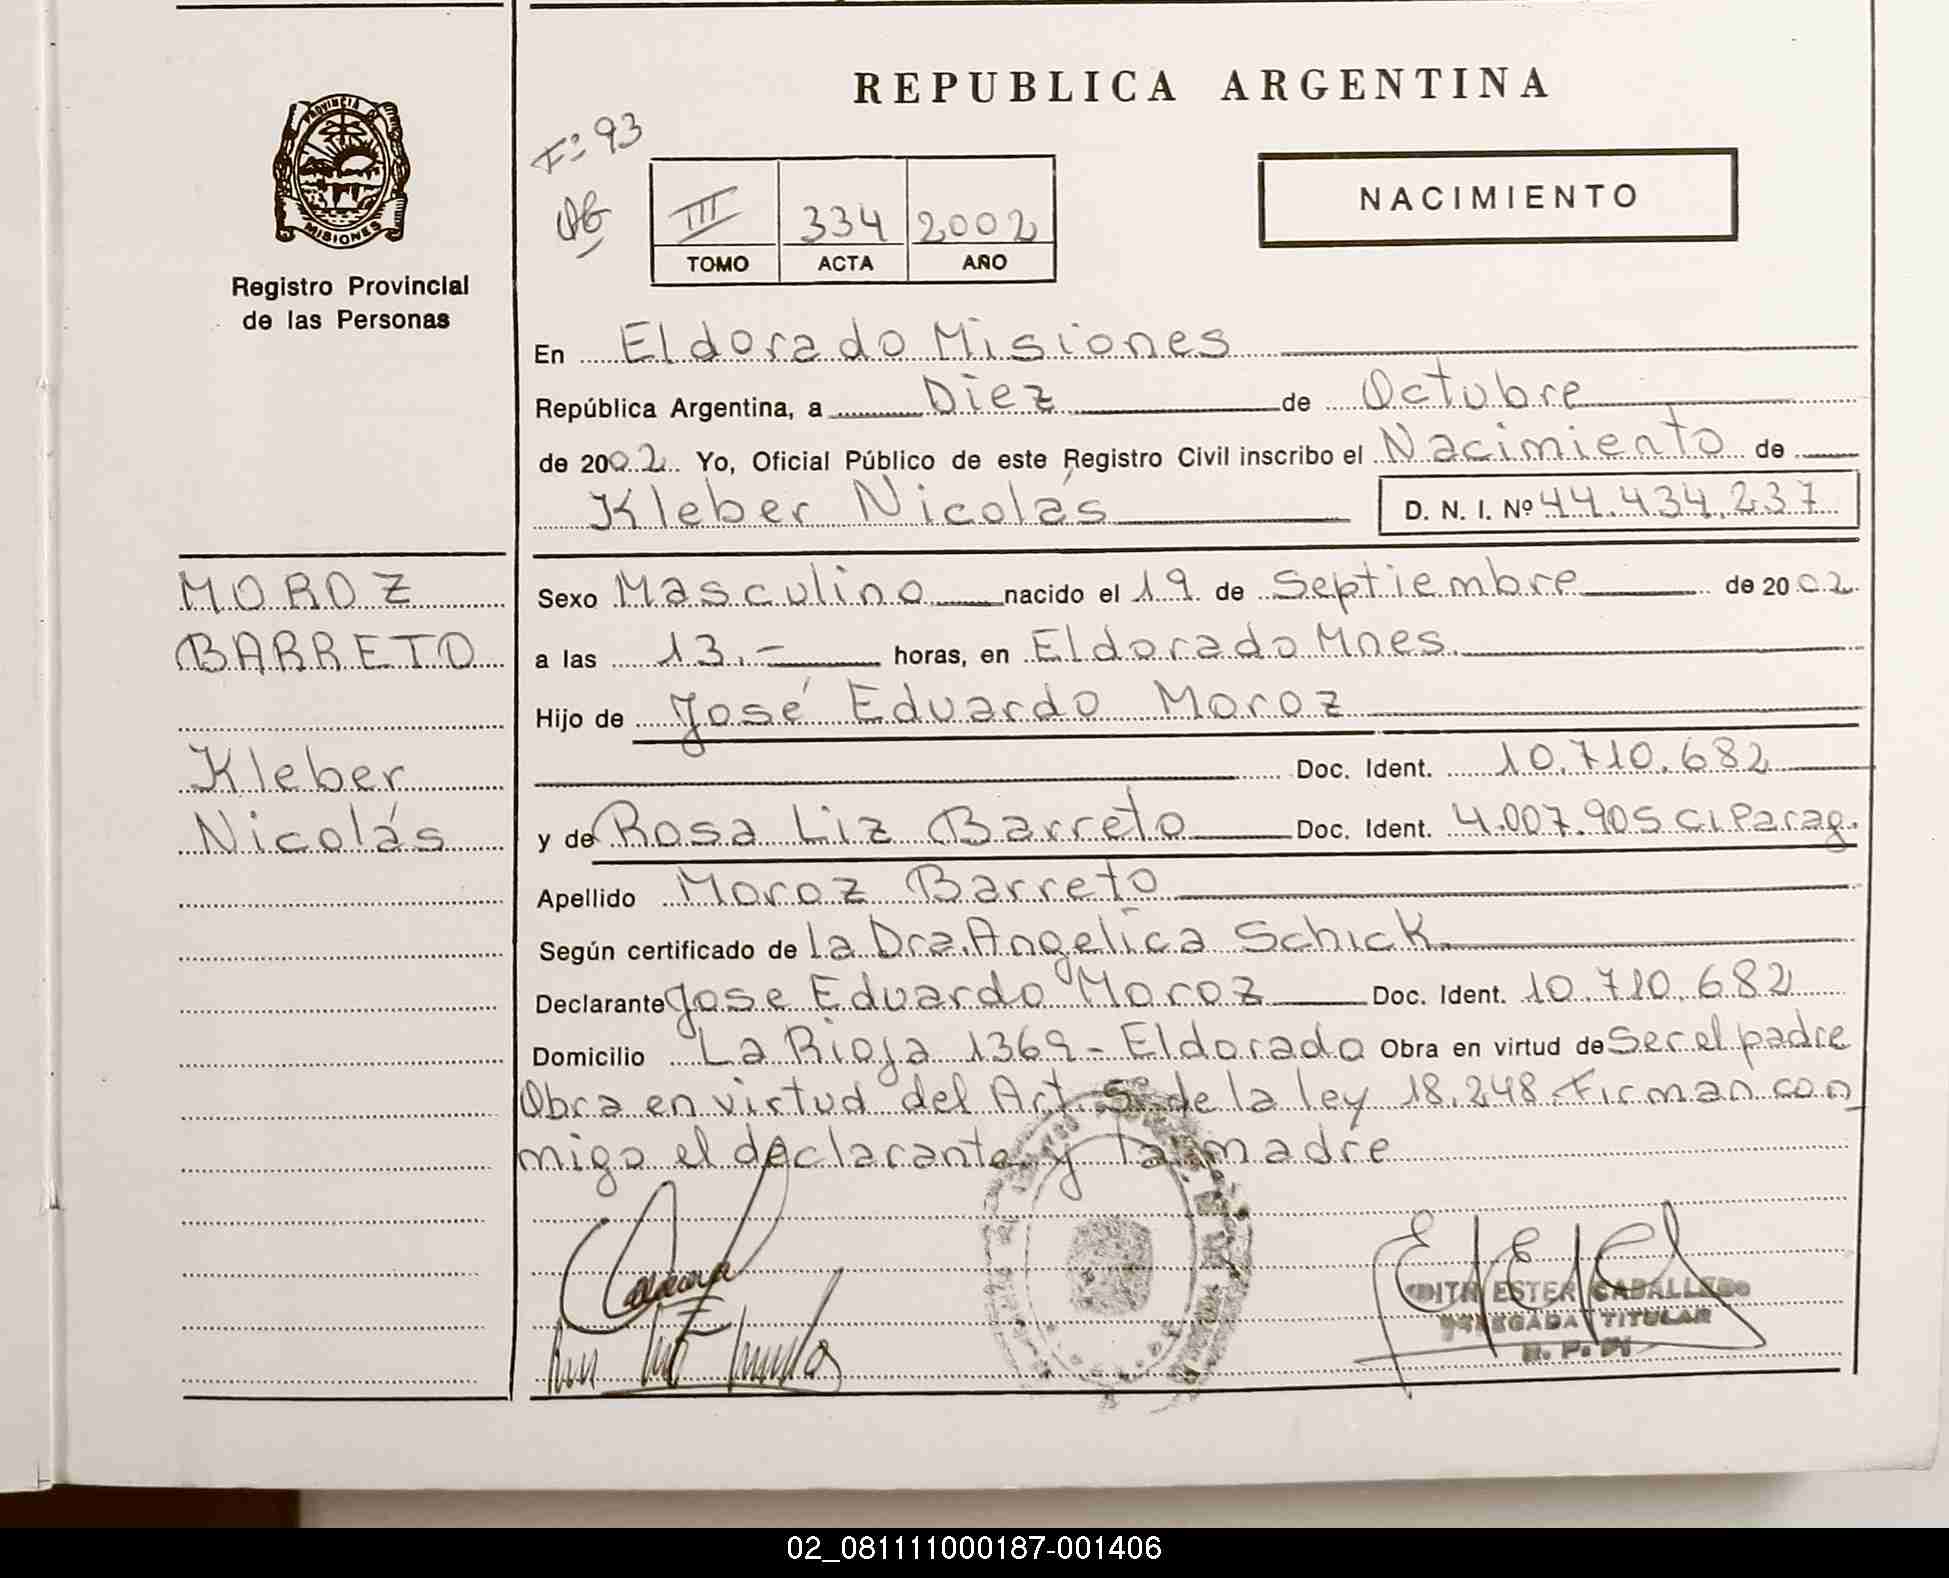 REPUBLICA ARGENTINA
PROVINCIA
MISIONES
Registro Provincial
de las Personas
Fº 93
III 334 2002
TOMO ACTA AÑO
NACIMIENTO
En Eldorado Misiones
República Argentina, a Diez de Octubre
de 2002 Yo, Oficial Público de este Registro Civil inscribo el Nacimiento de
Kleber Nicolás D. N. I. Nº 44.434.237
MOROZ
BARRETO
Kleber
Nicolás
Sexo Masculino nacido el 19 de Septiembre de 2002
a las 13.- horas, en Eldorado Mnes.
Hijo de José Eduardo Moroz
Doc. Ident. 10.710.682
y de Rosa Liz Barreto Doc. Ident. 4.007.905 CI Parag.
Apellido Moroz Barreto
Según certificado de la Dra. Angelica Schick
Declarante Jose Eduardo Moroz Doc. Ident. 10.710.682
Domicilio La Rioja 1369 - Eldorado Obra en virtud de Ser el padre
Obra en virtud del Art. 5º de la ley 18.248. Firman con
migo el declarante y la madre
EDITH ESTER CABALLERO
DELEGADA TITULAR
02_081111000187-001406